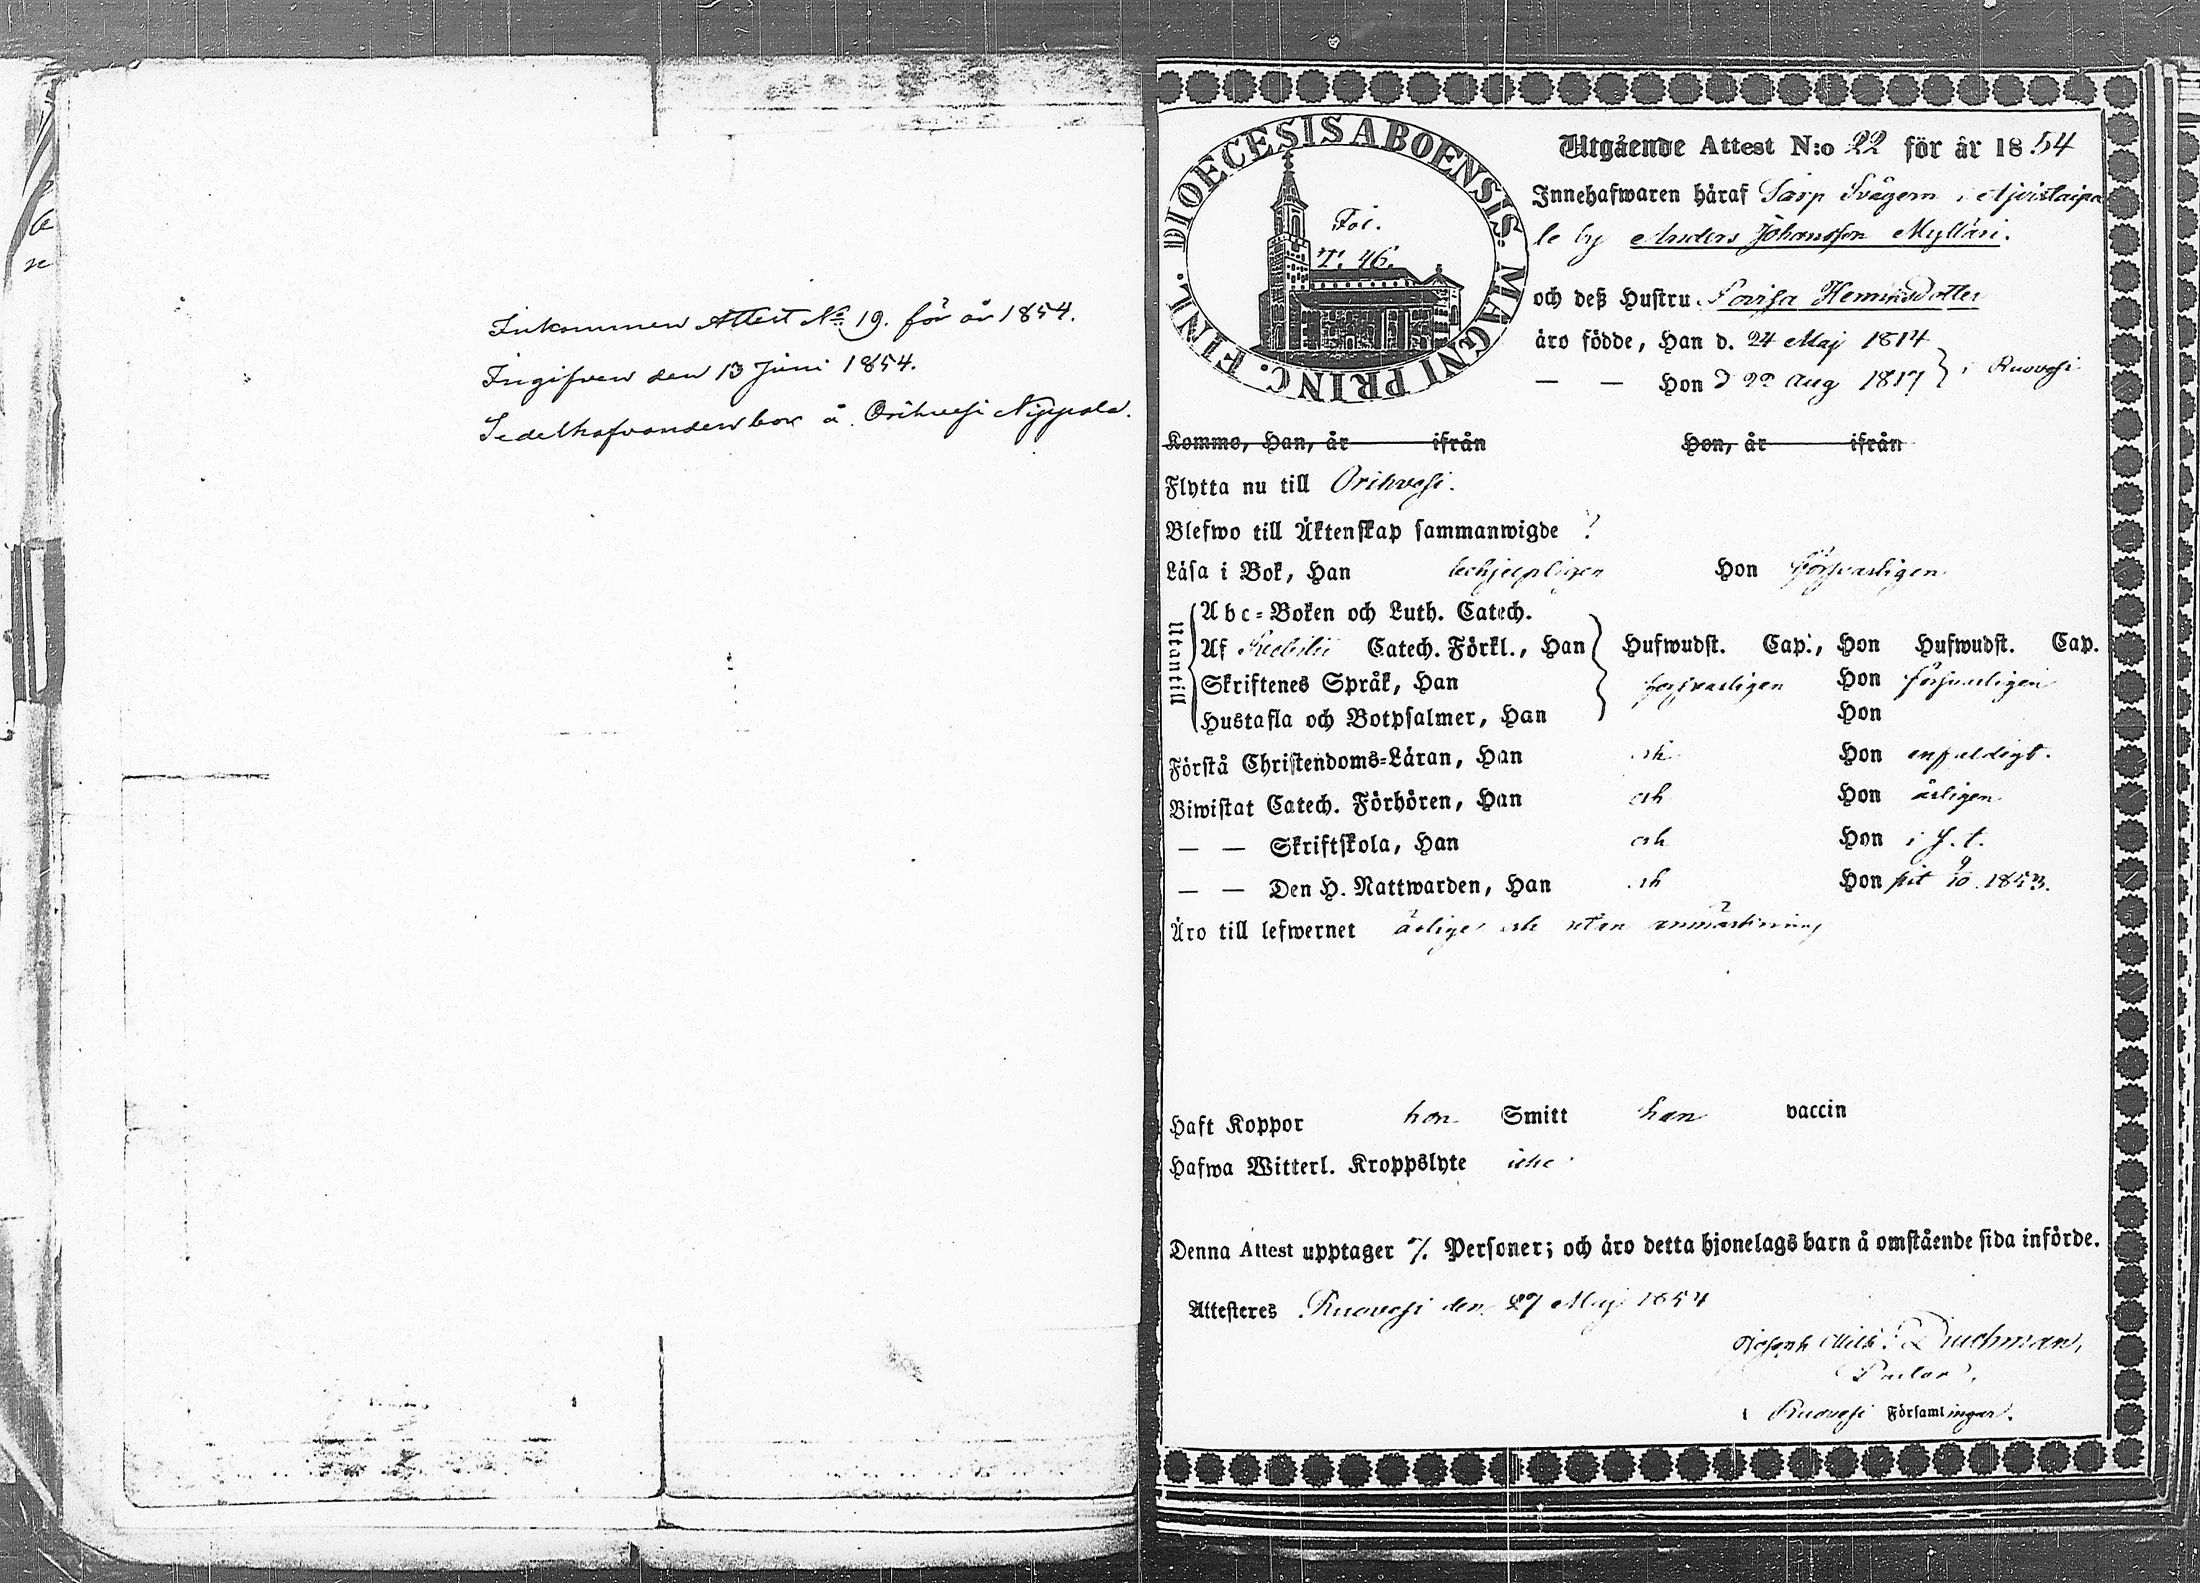 Inkommen Attest No 19. för år 1854.
Ingifven den 13 Juni 1854.
Sedelhafvanden bor å Orihvesi Nyppola.
DIOECESIS ABOENSIS. MAGNI PRINC. FINL.
Fol.
46.
Utgående Attest N:o 22 för år 1854
Innehafwaren häraf Torp Svågern i
le by Anders Johansson Mylläri.
och deß Hustru Lovisa Henriksdotter
äro födde, Han d. 24 Maj 1814
— — Hon d 22 Aug 1817 } i Ruovesi
Komme, Han, år ifrån Hon, år ifrån
Flytta nu till Orihvesi.
Blefwo till Äktenskap sammanwigde ?
Läsa i Bok, Han behjelpligen Hon försvarligen
Utantill
Abc-Boken och Luth. Catech.
Af Svebilii Catech. Förkl., Han Hufwudst. Cap., Hon Hufwudst. Cap.
Skriftenes Språk, Han försvarligen Hon försvarligen
Hustafla och Botpsalmer, Han Hon
Förstå Christendoms-Läran, Han och Hon enfaldigt.
Biwistat Catech. Förhören, Han och Hon årligen
— — Skriftskola, Han och Hon i s. t.
— — Den H. Nattwarden, Han och Hon sist 9/10 1853.
Äro till lefwernet ärlige och utan anmärkning
Haft Koppor hon Smitt han vaccin
Hafwa Witterl. Kroppslyte icke
Denna Attest upptager 7. Personer; och äro detta hjonelags barn å omstående sida införde.
Attesteres Ruovesi den 27 Maj 1854
Joseph Wilh. Durchman,
Pastor,
i Ruovesi Församlingar.